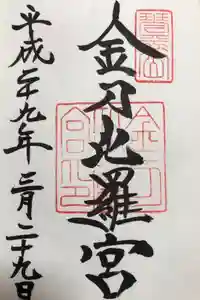 金刀比羅宮
平成二十九年三月二十九日